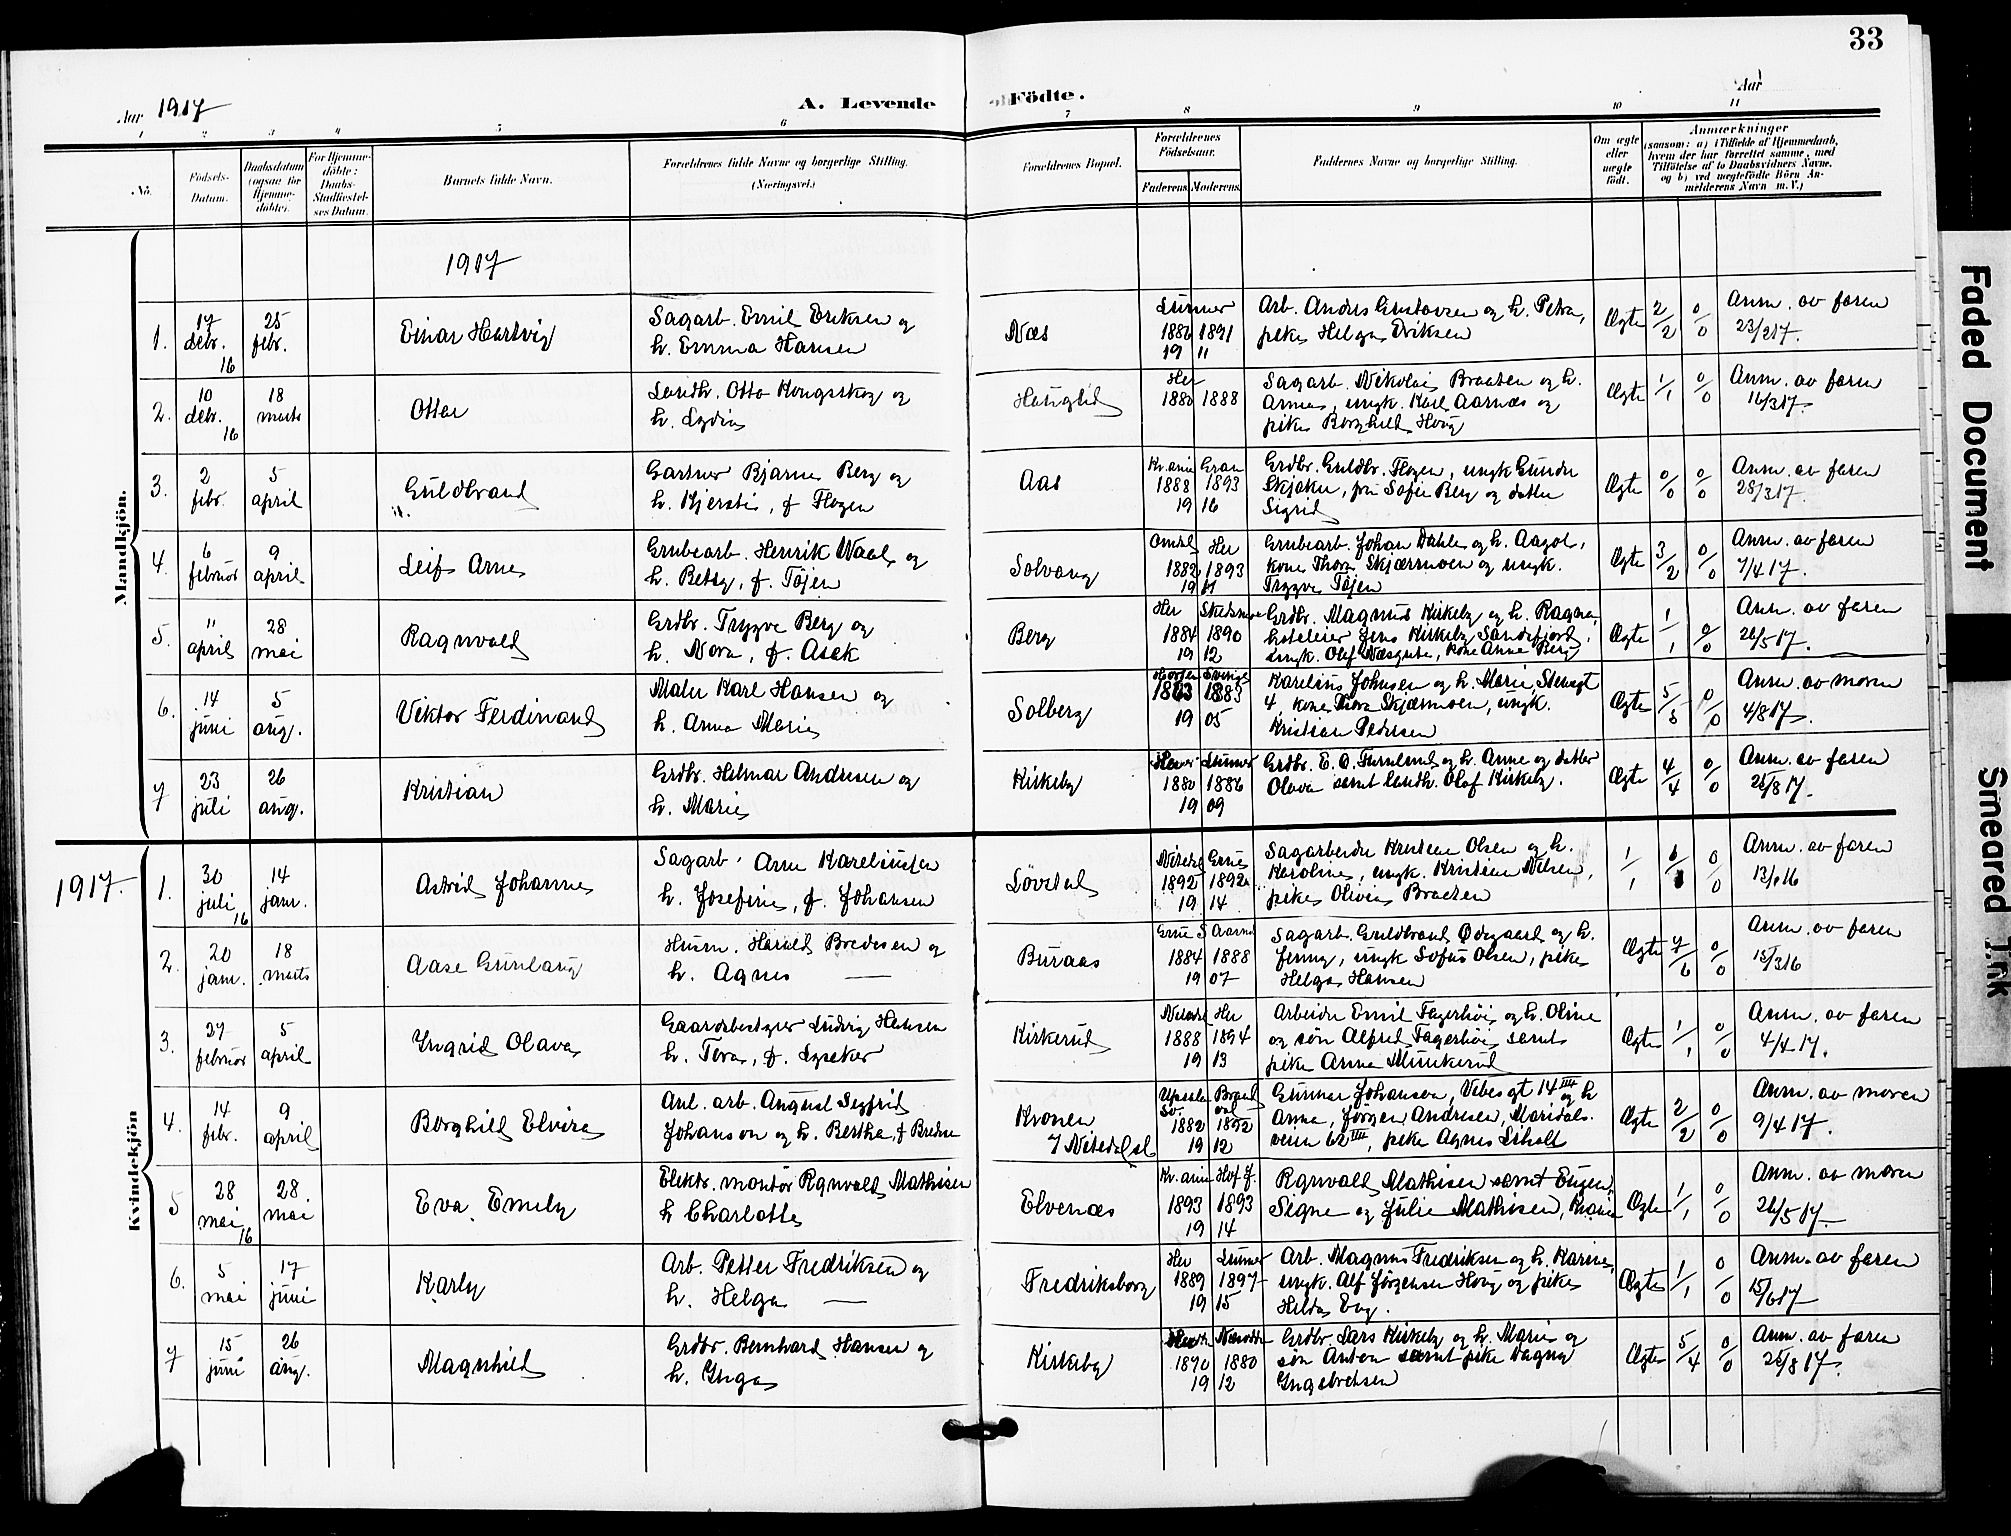 33
Aar 1917
A. Levende Födte.
Aar
1 2 3 4 5 6 7 8 9 10 11
No.
Födsels-
Datum.
Daabsdatum
(ogsaa for
Hjemme-
döbte).
For Hjemme-
döbte:
Daabs-
Stadfæstel-
ses Datum.
Barnets fulde Navn.
Forældrenes fulde Navne og borgerlige Stilling.
(Næringsvei.)
Forældrenes Bopæl.
Forældrenes
Födselsaar.
Faderens. Moderens.
Faddernes Navne og borgerlige Stilling.
Om ægte
eller
uægte
födt.
Anmærkninger
(saasom: a) i Tilfælde af Hjemmedaab,
hvem der har forrettet samme, med
Tilföielse af to Daabsvidners Navne,
og b) ved uægtefödte Börn An-
melderens Navn m. V.)
Mandkjön.
1917
1. 17 debr. 16
25 febr.
Einar Hartvig
Sagarb. Emil Eriksen og
h. Emma Hansen
Næs
Lunner
1886 1891
19 11
Arb. Anders Gustavsen og h. Petra,
pike Helga Eriksen
Ægte 2/2 0/0
Anm. av faren
23/2 17.
2. 10 debr. 16
18 marts
Ottar
Landh. Otto Kongsskog og
h. Lydia
Hauglid
Her
1880 1888
Sagarb. Nikolai Braaten og h.
Anna, ungk. Karl Aarnæs og
pike Borghild Haug
Ægte 1/1 0/0
Anm. av faren
16/3 17.
3. 2 febr.
5 april
Guldbrand
Gartner Bjarne Berg og
h. Kjersti, f. Flogen
Aas
Kr.ania Gran
1888 1893
19 16
Grdbr. Guldbr. Flogen, ungk Gunder
Skjaker, fru Sofie Berg og datter
Sigrid
Ægte 0/0 0/0
Anm. av faren
28/3 17.
4. 6 februar
9 april
Leif Arne
Grubearb. Henrik Waal og
h. Betsy, f. Töjen
Solvang
Her
1882 1893
19
Grubearb. Johan Dahle og h. Aagot,
kone Thora Skjærmoen og ungk.
Trygve Töjen
Ægte 3/2 0/0
Anm. av faren
7/4 17.
5. 11 april
28 mai
Ragnvald
Grdbr. Trygve Berg og
h. Nora, f. Asak
Berg
Her Skedsmo
1884 1890
19 12
Grdbr. Magnus Kirkeby og h. Ragna,
hoteleier Jens Kirkeby Sandefjord,
ungk. Olaf Næsgute, kone Anna Berg
Ægte 1/1 0/0
Anm. av faren
26/5 17.
6. 14 juni
5 aug.
Viktor Ferdinand
Maler Karl Hansen og
h. Anna Marie
Solberg
Horten Sverige
1883 1883
19 05
Karelius Johnsen og h. Marie, Stensgt
4, kone Thora Skjærmoen, ungk.
Kristian Pedersen
Ægte 5/5 0/0
Anm. av moren
4/8 17.
7 23 juli
26 aug.
Kristian
Grdbr. Hilmar Andresen og
h. Marie
Kirkeby
Lunner
1880 1886
19 09
Grdbr. E. O. Furulund og h. Anne og datter
Olava samt landh. Olaf Kirkeby.
Ægte 4/4 0/0
Anm. av faren
25/8 17.
1917.
Kvindekjön
1. 30 juli 16
14 jan.
Astrid Johanne
Sagarb. Arne Kareliussen
h. Josefine, f. Johansen
Lövstad
Nitedal Grue
1892 1892
19 14
Sagarbeider Kristian Olsen og h.
Karoline, ungk. Kristian Nilsen,
pike Olivia Braaten
1/1 0/0
Anm. av faren
2. 20 jan.
18 marts
Aase Gunlaug
Husm. Harald Bredesen og
h. Agnes —
Buraas
Grue S Aarnes
1884 1888
19 07
Sagarb. Guldbrand Ødegaard og h.
Jenny, ungk Sofus Olsen, pike
Helga Hansen
Ægte 7/6 0/0
Anm. av faren
15/3 16
3. 27 februar
5 april
Yngrid Olava
Gaardsbestyrer Ludvig Hansen
h. Tora, f. Lysaker
Kirkerud
Nitedal Her
1888 1894
19 13
Arbeider Emil Fagerhöi og h. Oline
og sön Alfred Fagerhöi samt
pike Anna Munkerud
Ægte 1/1 0/0
Anm. av faren
4/4 17.
4. 14 febr.
9 april
Borghild Elvira
Anl. arb. August Segfrid
Johanson og h. Bertha, f Bredsen
Kronen
i Nitedal
Upsala
Sv.
1882 1892
19 12
Gunnar Johanson, Vibes gt 14 IIII og h
Anna, Jörgen Andresen, Maridals-
veien 62 III, pike Agnes Liholt
Ægte 2/2 0/0
Anm. av moren
9/4 17.
5 28 mai 16
28. mai
Eva Emely
Elektr. montör Rgnvald Mathisen
h Charlotte
Elvenæs
Kr.ania Hof J.
1893 1893
19 14
Rgnvald Mathisen samt Eugen,
Signe og Julie Mathisen, Krania
Ægte 1/1 0/0
Anm. av moren
26/5 17.
6. 5 mai
17 juni
Karly
Arb. Petter Fredriksen og
h. Helga —
Fredriksborg
Her Lunner
1889 1897
19 15
Arb. Magnus Fredriksen og h. Karine,
ungk. Alf Jörgensen Haug og pike
Hilda Eng.
Ægte 1/1 0/0
Anm. av faren
15/6 17
7 15 juni
26 aug.
Magnhild
Grdbr. Bernhard Hansen og
h. Ynga
Kirkeby
1870 1880
19 12
Grdbr. Lars Kirkeby og h. Marie og
sön Anton samt pike Dagny
Yngebretsen
Ægte 5/4 0/0
Anm. av faren
25/8 17.
Faded Document
Smeared Ink